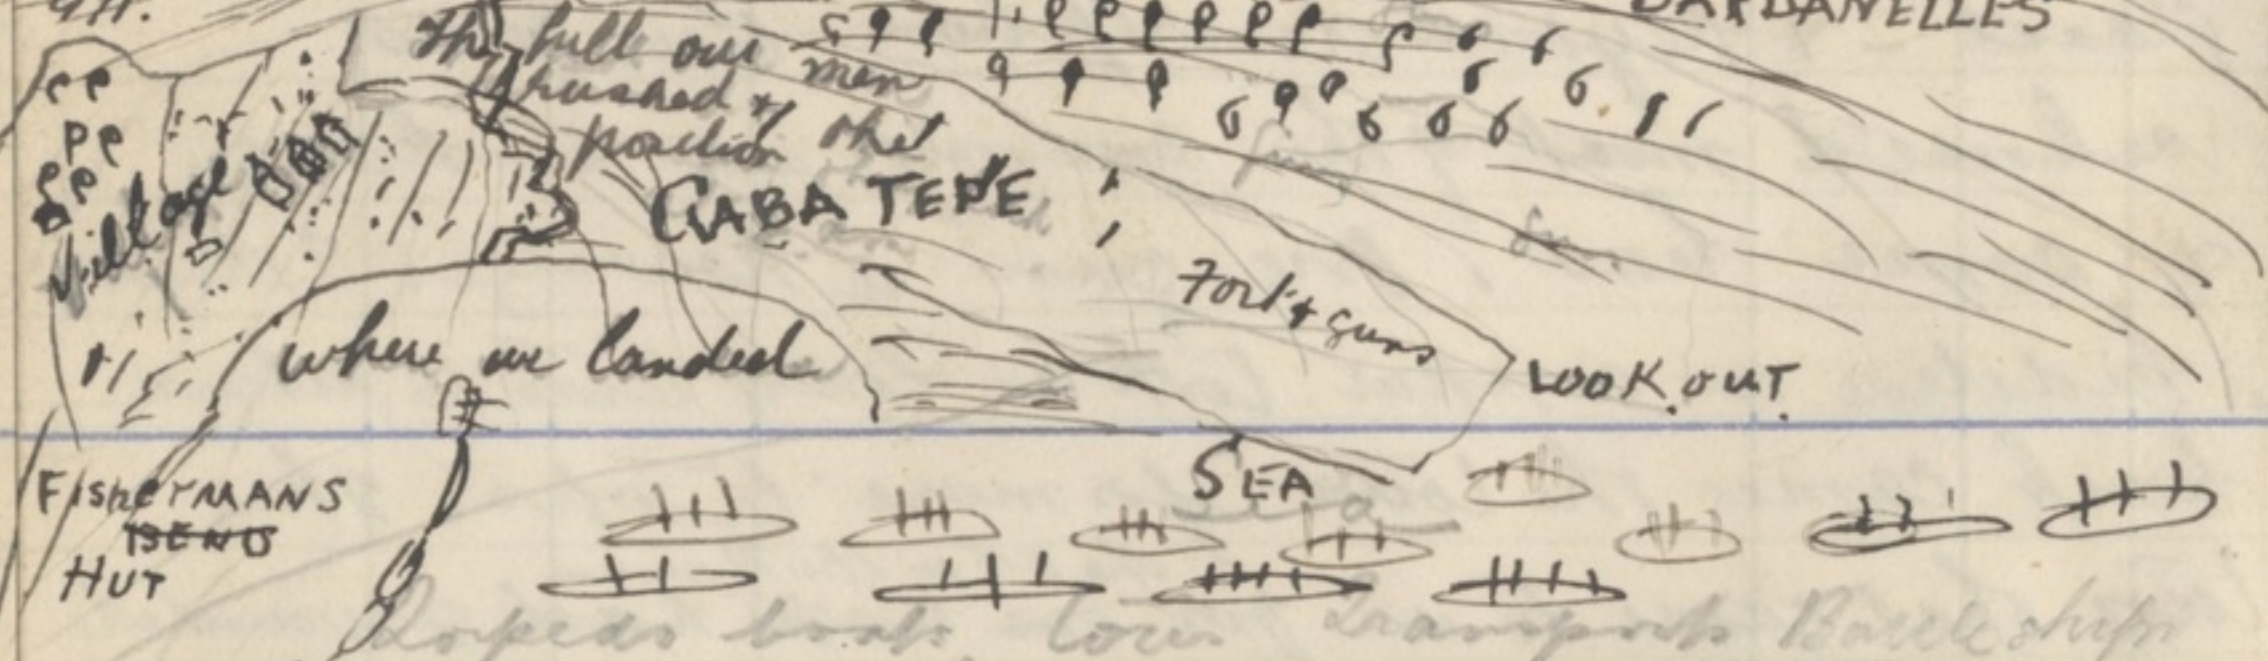 DARDANELLES
The hill our
men
rushed &
position
GABA TEPE
Village
Fort & guns
where we landed
LOOK OUT.
SEA
FISHERMANS
BEND
HUT
Torpedo boats Transports Battleships